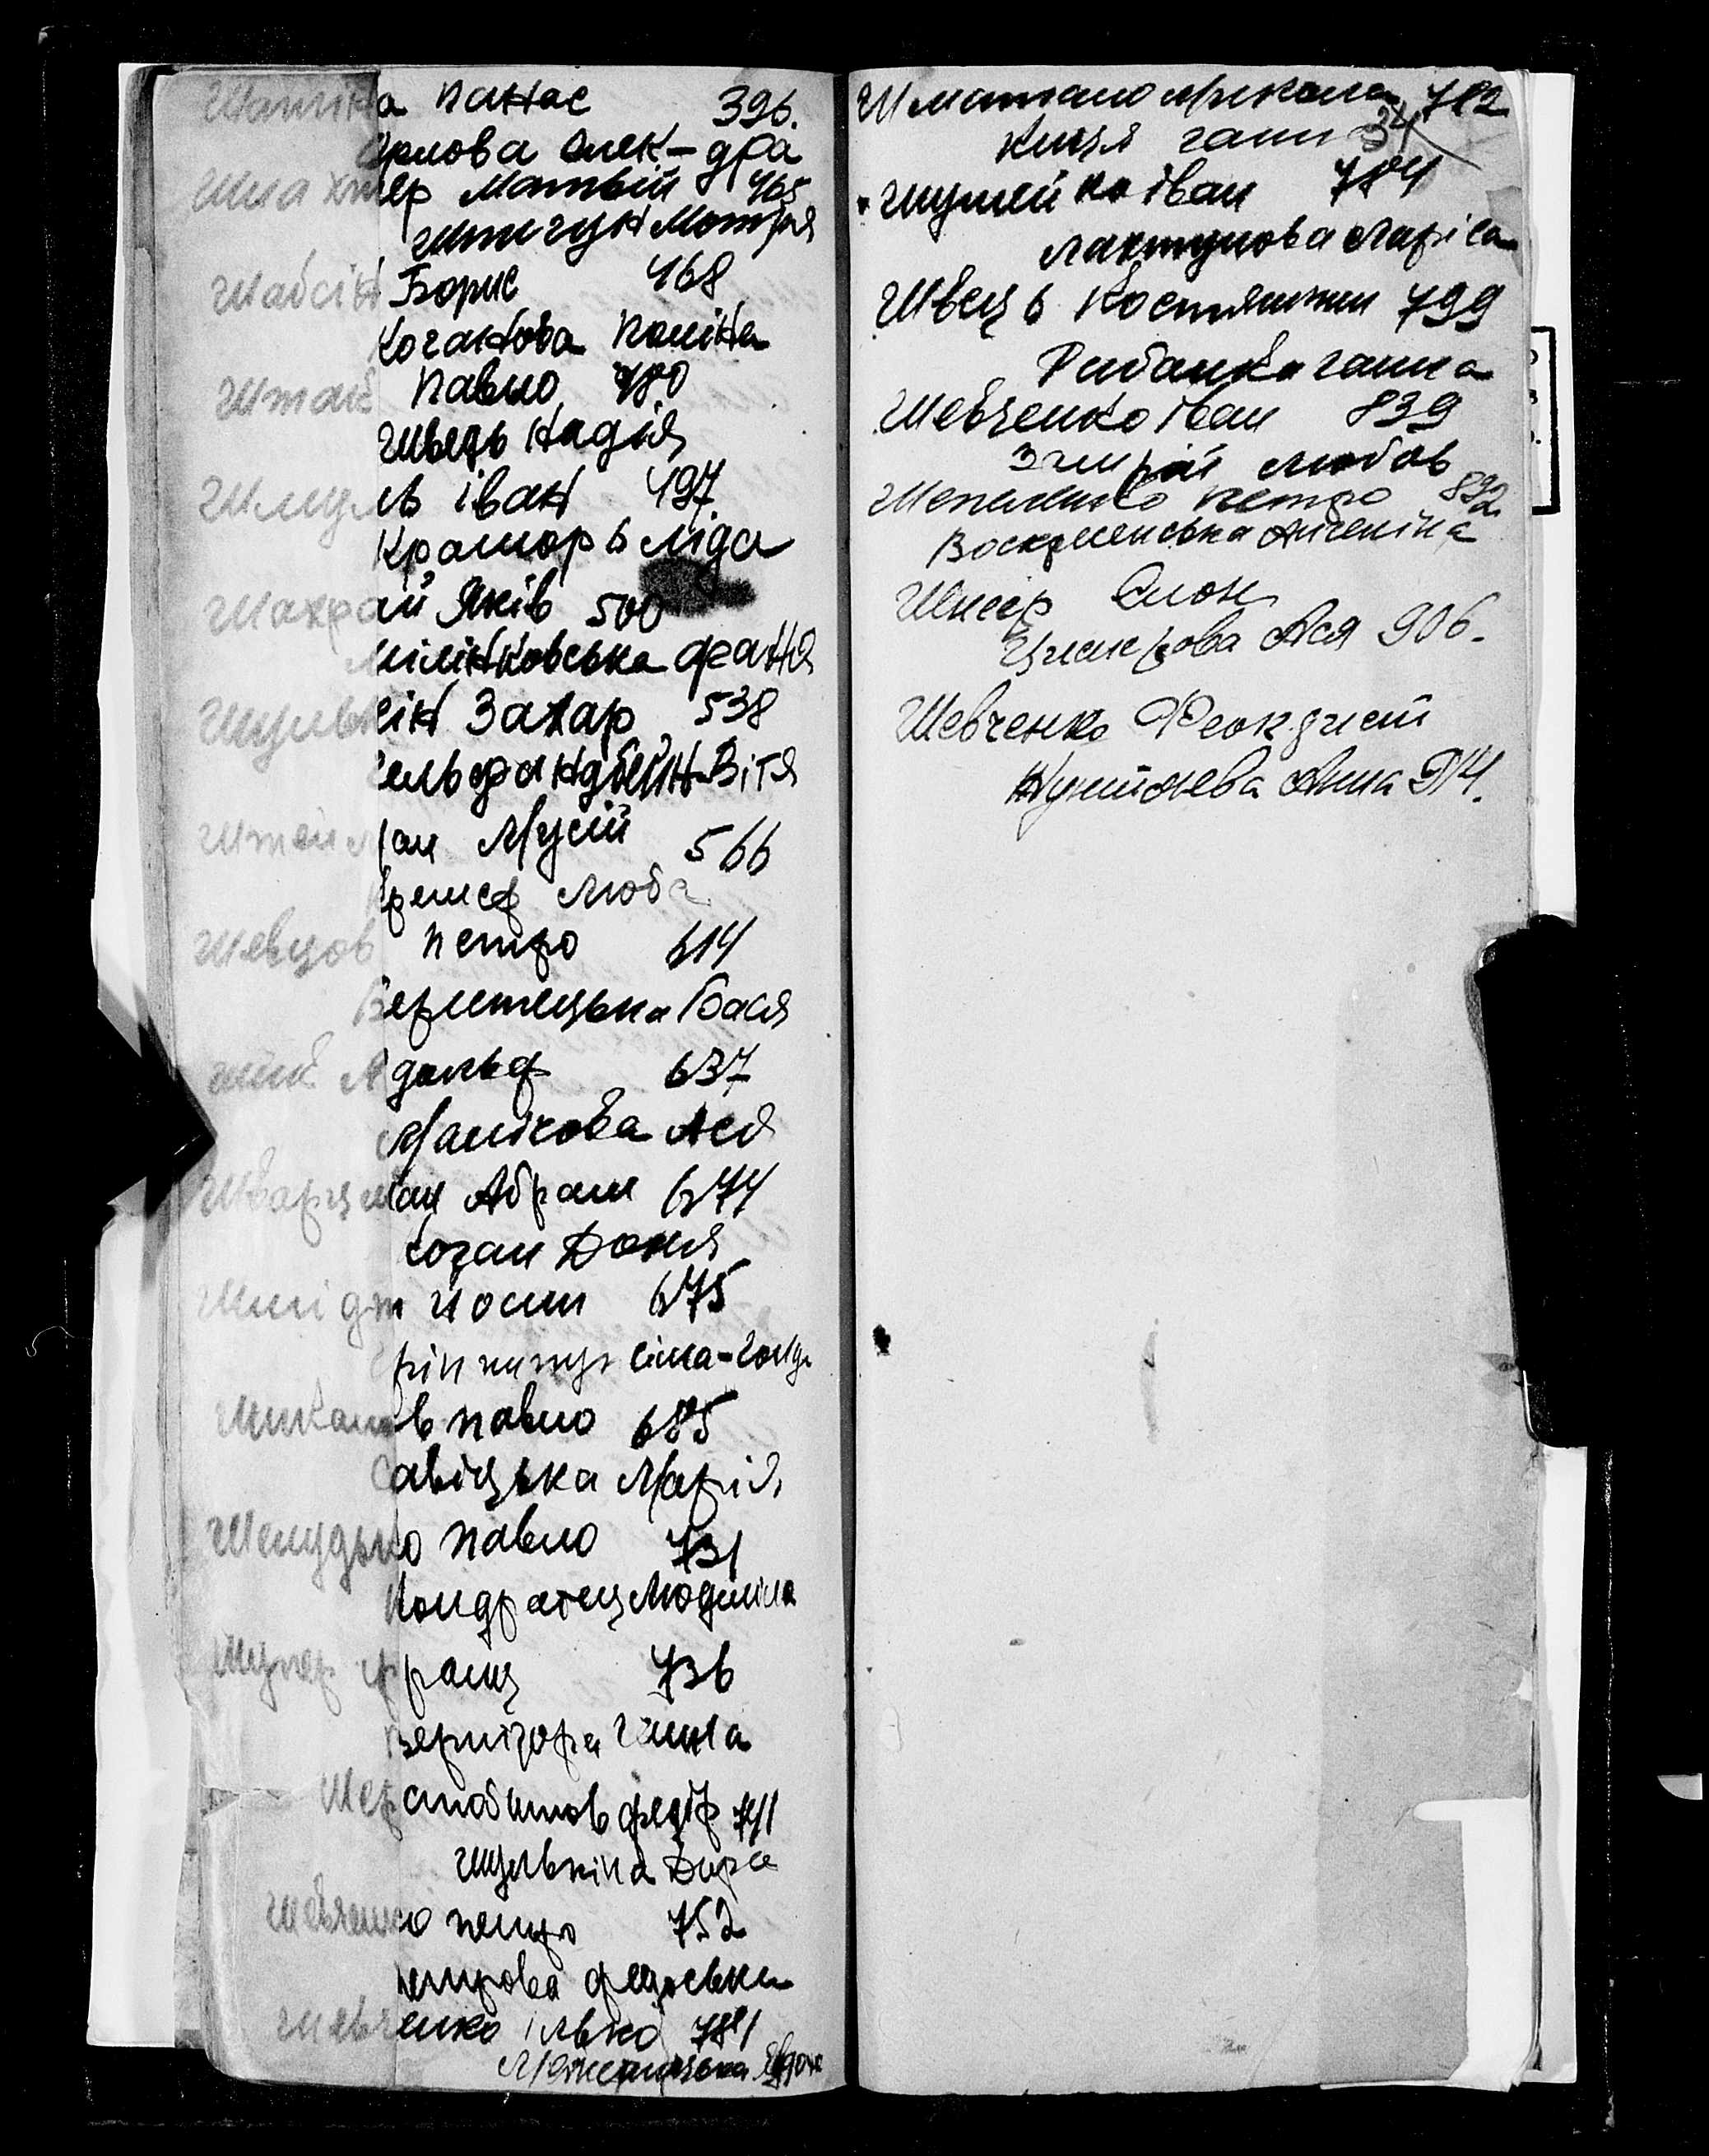 Шапіка Панас 396.
Орлова Олек-дра
Шлахтер Матвій 465
Шпигун Мотря
Шабсін Борис 468
Коганова Поліна
Штаб Павло 480
Швець Надія
Шмуль Іван 497
Крамарь Ліда
Шахрай Яків 500
Мілінковська Фаня
Шулькін Захар 538
Гельфандбейн Вітя
Штейман Мусій 566
Люба
Шевцов Петро 614
Верлецька Бася
Адольф 637
Манькова Ася
Шварцман Абрам 674
Коган Доня
Шмідт Йосип 675
Сіма-Голда
Шикалов Павло 685
Савіцька Марія
Шелудько Павло 731
Кондратец Людмила
Шупер Франц 736
Вернігора Ганна
Шерстобитов Федір 741
Шулькіна Дора
Шевченко Петро 752
Петрова Федоська
Шевченко Ілько 781
Шматало Микола 782
Куця Ганна
Шумейко Іван 784
Лактунова Ларіса
Швець Костянтин 799
Рибалка Ганна
Шевченко Іван 839
Любов
Шепеленко Петро 892
Воскресенська Ангеліна
Шнеєр Слон
Цукерова Ася 906.
Шевченко Феоктист
Анна 914.